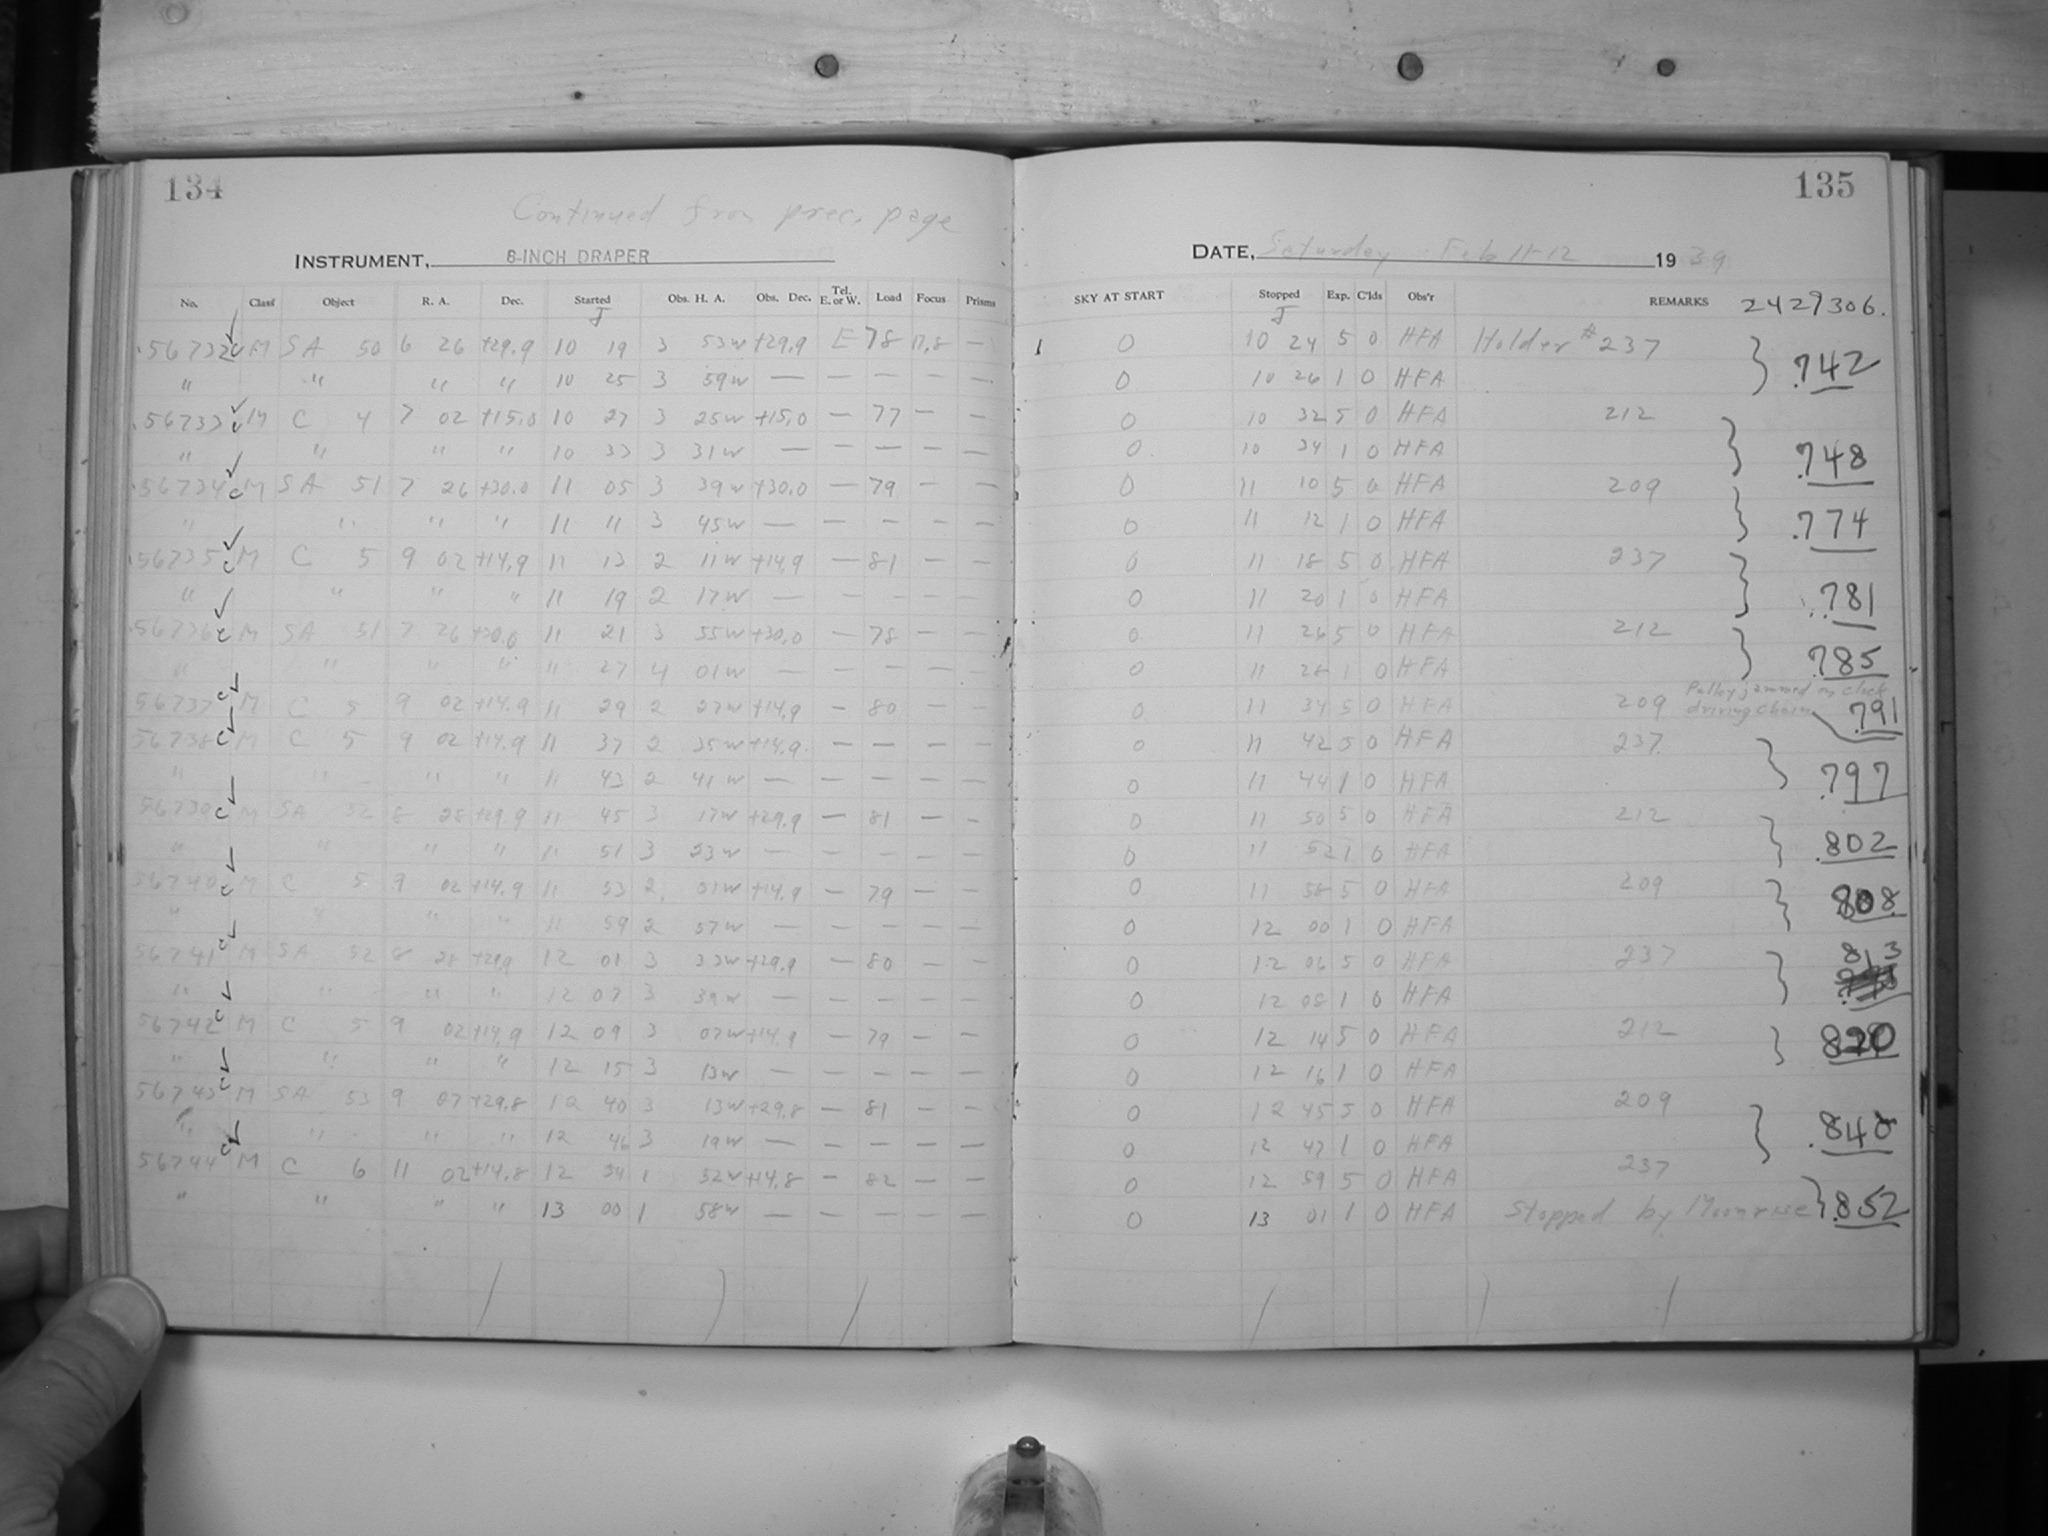 134
Continued from prec. page
INSTRUMENT, 8-INCH DRAPER
No. Class Object R. A. Dec. Started Obs. H. A. Obs. Dec. Tel. E. or W. Load Focus Prisms
J
56732 M SA 50 6 26 +29.9 10 19 3 53w +29.9 E 78 17.8 —
" " " " 10 25 3 59w — — — — —
56733 M C 4 7 02 +15.0 10 27 3 25w +15.0 — 77 — —
" " " " 10 33 3 31w — — — — —
56734 M SA 51 7 26 +30.0 11 05 3 39w +30.0 — 79 — —
" " " " 11 11 3 45w — — — — —
56735 M C 5 9 02 +14.9 11 13 2 11w +14.9 — 81 — —
" " " " 11 19 2 17w — — — — —
56736 M SA 51 7 26 +30.0 11 21 3 55w +30.0 — 78 — —
" " " " 11 27 4 01w — — — — —
56737 M C 5 9 02 +14.9 11 29 2 27w +14.9 — 80 — —
56738 M C 5 9 02 +14.9 11 37 2 35w +14.9 — — — —
" " " " 11 43 2 41w — — — — —
56739 M SA 52 8 28 +29.9 11 45 3 17w +29.9 — 81 — —
" " " " 11 51 3 23w — — — — —
56740 M C 5 9 02 +14.9 11 53 2 51w +14.9 — 79 — —
" " " " 11 59 2 57w — — — — —
56741 M SA 52 8 28 +29.9 12 01 3 33w +29.9 — 80 — —
" " " " 12 07 3 39w — — — — —
56742 M C 5 9 02 +14.9 12 09 3 07w +14.9 — 79 — —
" " " " 12 15 3 13w — — — — —
56743 M SA 53 9 07 +29.8 12 40 3 13w +29.8 — 81 — —
" " " " 12 46 3 19w — — — — —
56744 M C 6 11 02 +14.8 12 54 1 52w +14.8 — 82 — —
" " " " 13 00 1 58w — — — — —
135
DATE, Saturday Feb 11-12 1939
SKY AT START Stopped Exp. C'lds Obs'r REMARKS 2429306.
J
1 0 10 24 5 0 HFA Holder # 237
0 10 26 1 0 HFA .742
0 10 32 5 0 HFA 212
0 10 34 1 0 HFA .748
0 11 10 5 0 HFA 209
0 11 12 1 0 HFA .774
0 11 18 5 0 HFA 237
0 11 20 1 0 HFA .781
0 11 26 5 0 HFA 212
0 11 28 1 0 HFA .785
0 11 34 5 0 HFA 209 Pulley jammed on clock driving chain .791
0 11 42 5 0 HFA 237
0 11 44 1 0 HFA .797
0 11 50 5 0 HFA 212
0 11 52 1 0 HFA .802
0 11 58 5 0 HFA 209
0 12 00 1 0 HFA .808
0 12 06 5 0 HFA 237 813
0 12 08 1 0 HFA
0 12 14 5 0 HFA 212 820
0 12 16 1 0 HFA
0 12 45 5 0 HFA 209
0 12 47 1 0 HFA .840
0 12 59 5 0 HFA 237
0 13 01 1 0 HFA Stopped by Moonrise .852